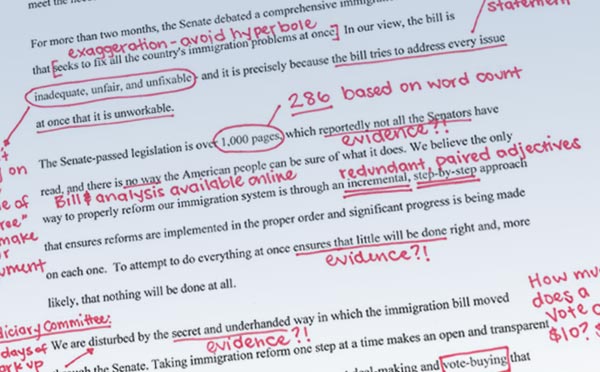 meet the
For more than two months, the Senate debated a comprehensive
statement
exaggeration - avoid hyperbole
that [seeks to fix all the country's immigration problems at once] In our view, the bill is
inadequate, unfair, and unfixable - and it is precisely because the bill tries to address every issue
at once that it is unworkable.
286 based on word count
The Senate-passed legislation is over 1,000 pages, which reportedly not all the Senators have
evidence?!
on
read, and there is no way the American people can be sure of what it does. We believe the only
Bill & analysis available online
redundant, paired adjectives
of
way to properly reform our immigration system is through an incremental, step-by-step approach
make
that ensures reforms are implemented in the proper order and significant progress is being made
on each one. To attempt to do everything at once ensures that little will be done right and, more
evidence?!
likely, that nothing will be done at all.
How
does a
vote
$10?
Committee:
days of
We are disturbed by the secret and underhanded way in which the immigration bill moved
evidence?!
up
the Senate. Taking immigration reform one step at a time makes an open and transparent
making and vote-buying that